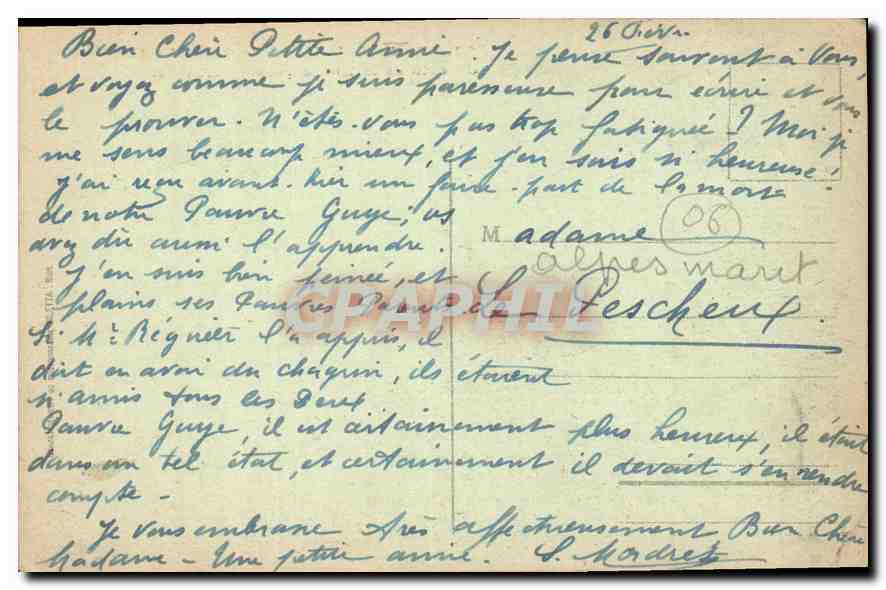 26 Févr
Bien Chère Petite Amie. Je pense souvent à Vous,
et voyez comme je suis paresseuse pour écrire et vous
le prouver. N'êtes-vous pas trop fatiguée ? Moi je
me sens beaucoup mieux, et j'en suis si heureuse!
J'ai reçu avant-hier un faire-part de la mort
de notre Pauvre Guye; vs
avez dû aussi l'apprendre.
J'en suis bien peinée, et
plains ses Pauvres Parents.
Si Mr Régnier l'a appris, il
doit en avoir du chagrin, ils étaient
si amis tous les Deux
Pauvre Guye, il est certainement plus heureux, il était
dans un tel état, et certainement il devait s'en rendre
compte -
Je vous embrasse très affectueusement Bien Chère
Madame - Une petite amie. S. Mordret
Madame
06
alpes marit
Le Pescheux.
CPAPHIL